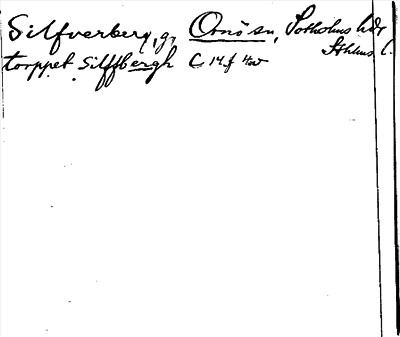 Silfverberg, g, Ornö sn, Sotholms hdr
Sthlms l.
torppet Silffbergh C 14 f 4 v